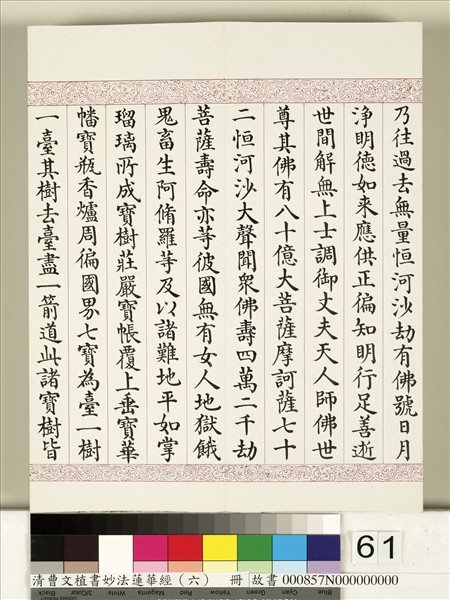 乃往過去無量恒河沙劫有佛號日月
淨明德如来應供正徧知明行足善逝
世間解無上士調御丈夫天人師佛世
尊其佛有八十億大菩薩摩訶薩七十
二恒河沙大聲聞衆佛壽四萬二千劫
菩薩壽命亦等彼國無有女人地獄餓
鬼畜生阿脩羅等及以諸難地平如掌
瑠璃所成寶樹莊嚴寶帳覆上垂寶華
幡寶瓶香爐周徧國界七寶為臺一樹
一臺其樹去臺盡一箭道此諸寶樹皆
61
清曹文植書妙法蓮華經（六） 冊 故書 000857N000000000
Black
3/Color
White
Magenta
Red
Yellow
Green
Cyan
Blue